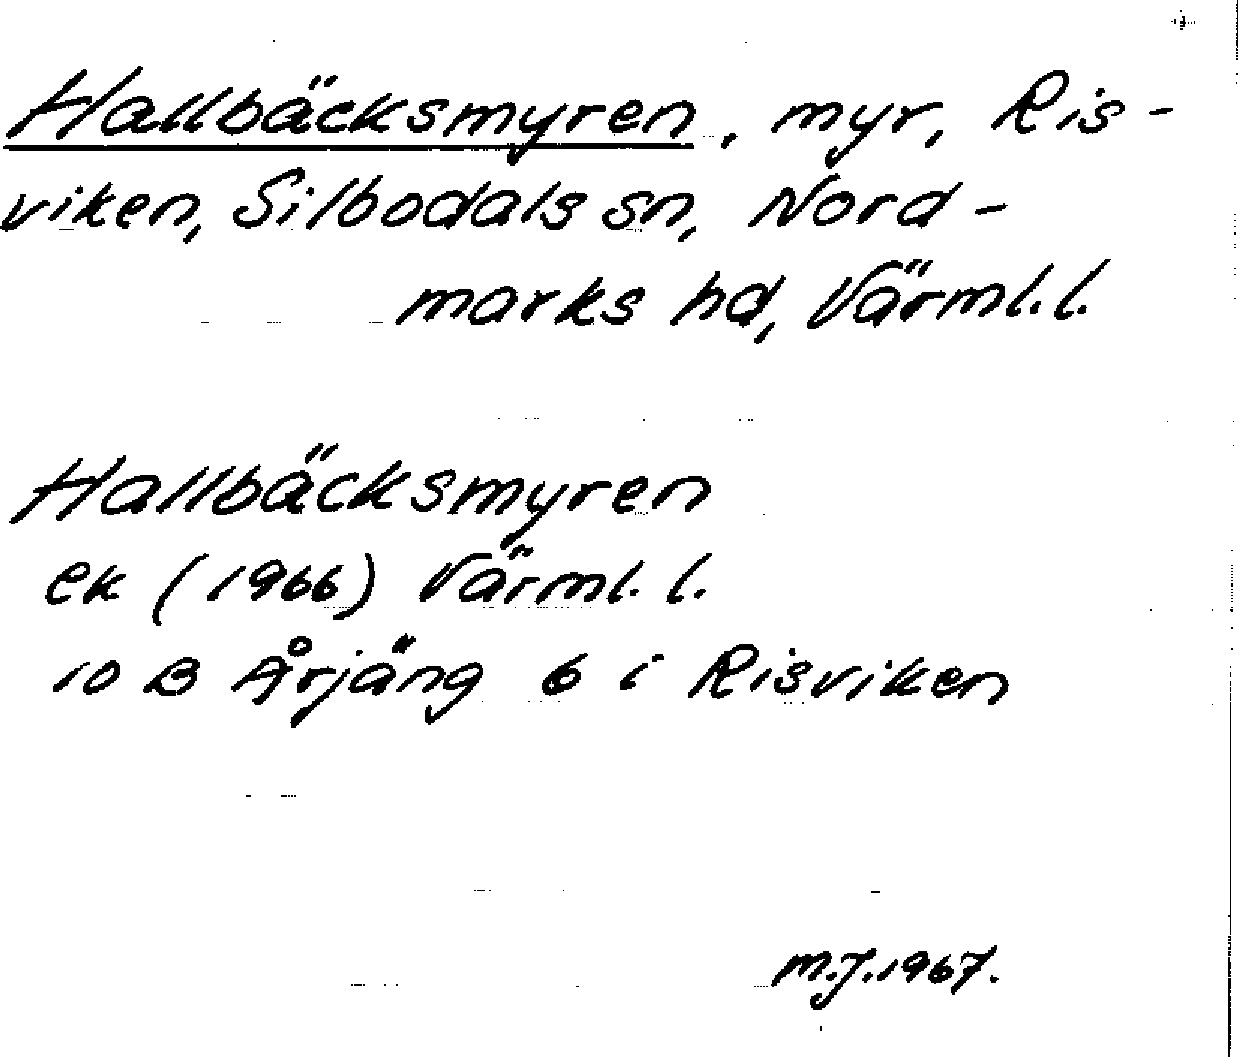 Hallbäcksmyren, myr, Ris-
viken, Silbodals sn, Nord-
marks hd, Värml. l.
Hallbäcksmyren
ek (1966) Värml. l.
10 B Årjäng 6 i Risviken
M.J. 1967.